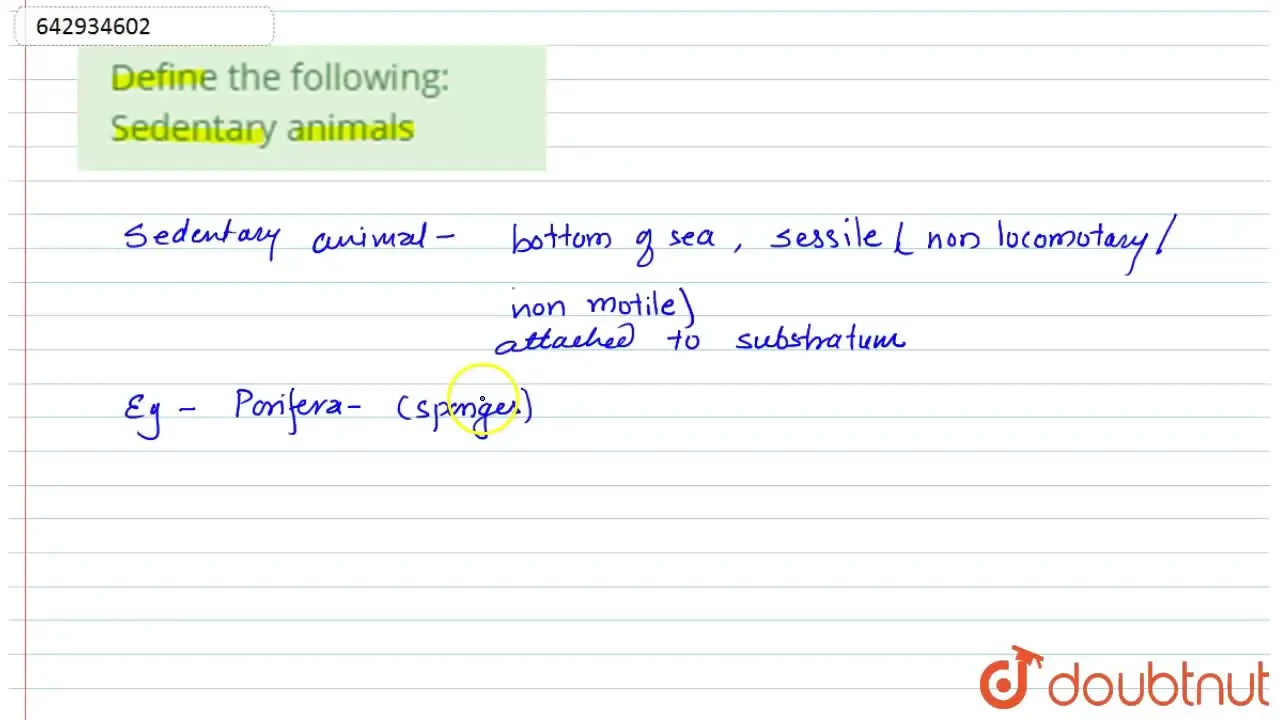 642934602
Define the following:
Sedentary animals
Sedentary animal – bottom of sea, sessile ( non locomotary /
non motile)
attached to substratum
Eg – Porifera – (sponges)
doubtnut